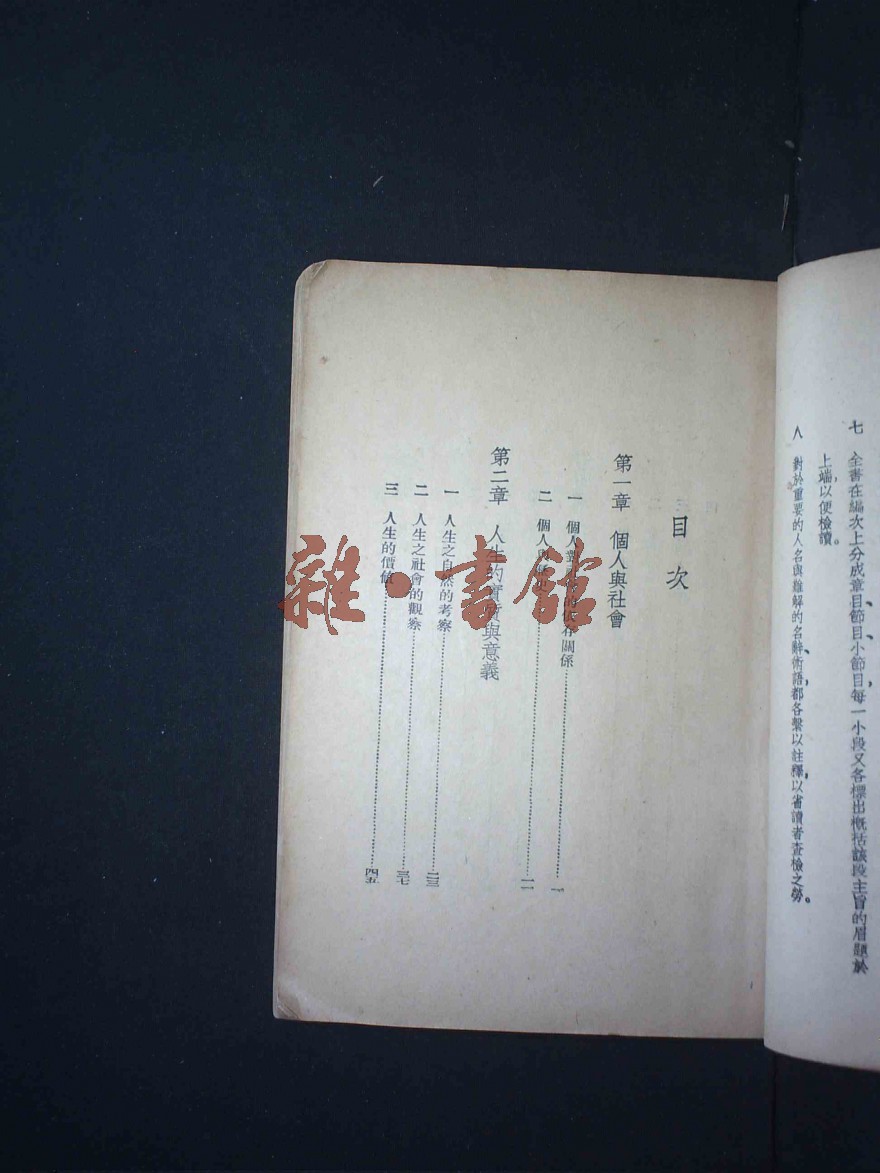 七　全書在編次上分成章目、節目、小節目，每一小段又各標出概括該段主旨的眉題於
上端，以便檢讀。
八　對於重要的人名與難解的名辭、術語，都各繫以註釋，以省讀者查檢之勞。
目次
第一章　個人與社會
一　個人對 的依存關係……一
二　個人與歷史……一一
第二章　人生的實質與意義
一　人生之自然的考察……二三
二　人生之社會的觀察……三七
三　人生的價值……四五
雜·書館